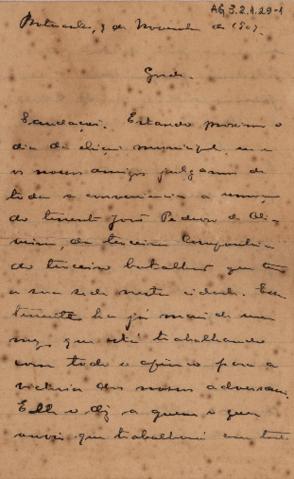 AG 3.2.1.29-1
Botucatu, 9 de Novembro de 1907.
Saudações. Estando proximo o
dia da eleição municipal
os nossos amigos julgamos de
toda a conveniencia a remoção
do tenente José Pedroso de Oli-
veira, da terceira Companhia
do terceiro batalhão que tem
a sua sede nesta cidade. Esse
tenente ha já mais de um
mez que está trabalhando
com todo o afinco para a
victoria dos nossos adversarios.
Elle o diz a quem o quer
ouvir que trabalhará com todo